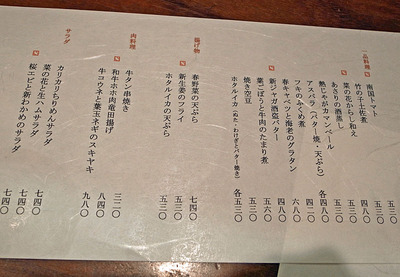 一品料理
南国トマト 五三〇
竹の子土佐煮 五三〇
菜の花からし和え 五三〇
あさりの酒蒸し 五三〇
熱じゃがカマンベール 四八〇
アスパラ（バター焼・天ぷら） 各四八〇
フキのふくめ煮 四二〇
春キャベツと海老のグラタン 六八〇
新ジャガ酒盗バター 四八〇
葉ごぼうと牛肉のたまり煮 五六〇
焼き空豆 五三〇
ホタルイカ（ぬた・わけぎとバター焼き） 各五三〇
揚げ物
春野菜の天ぷら 七四〇
新生姜のフライ 五三〇
ホタルイカの天ぷら 五三〇
肉料理
牛タン串焼き 三二〇
和牛ホホ肉竜田揚げ 八四〇
牛コウネと葉玉ネギのスキヤキ 九八〇
サラダ
カリカリちりめんサラダ 七四〇
菜の花と生ハムサラダ 七四〇
桜エビと新わかめのサラダ 七四〇